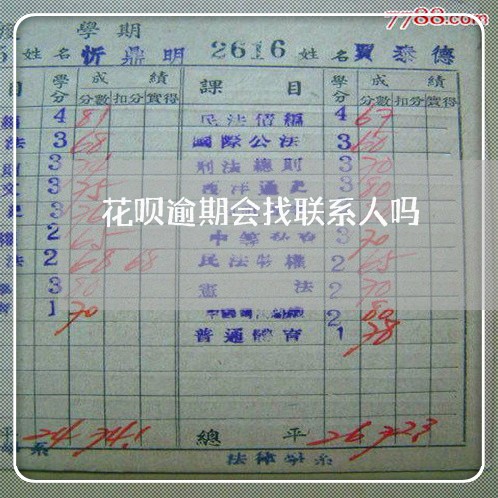 7788.com
學期
姓名 忻鼎明 2616 姓名 賈泰德
目 學分 成績 課目 學分 成績
分數 扣分 實得 分數 扣分 實得
4 81 民法債編 4 67
法 3 68 國際公法 3 60
3 刑法總則 3 70
3 75 西洋通史 3 80
花呗逾期会找联系人吗
2 65 3 70
法 2 68 68 民法物權 2 65
3 80 憲法 2 70
1 70 2 80
普通體育 1 78
平 24 74.1 總平 26 72.3
系 法律學系